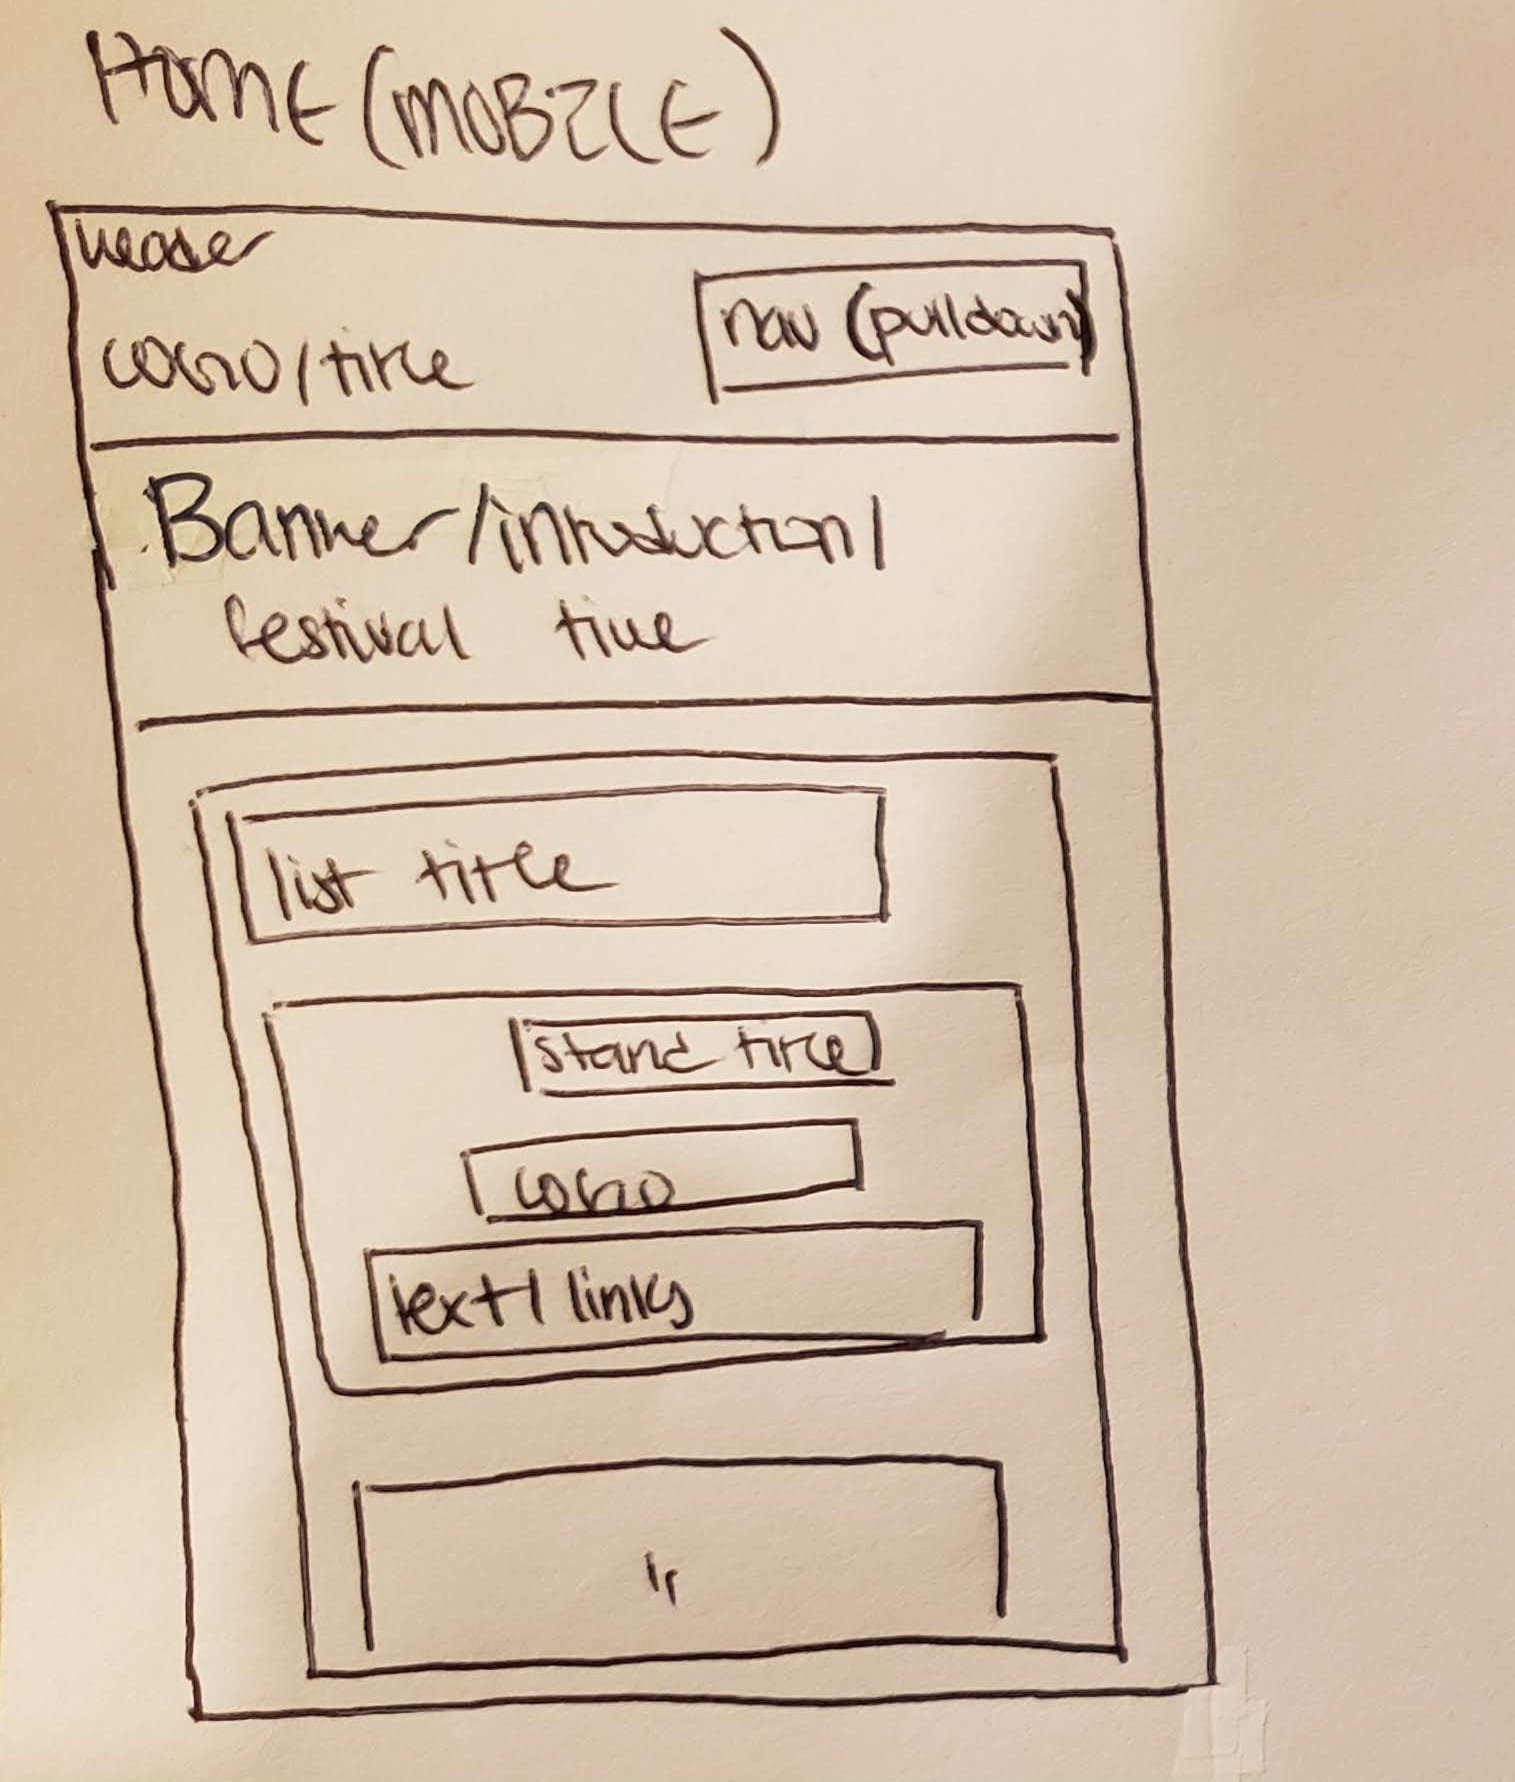 Home (MOBILE)
header
LOGO/title
nav (pulldown)
Banner/introduction/
festival time
list title
stand title
LOGO
text/links
"